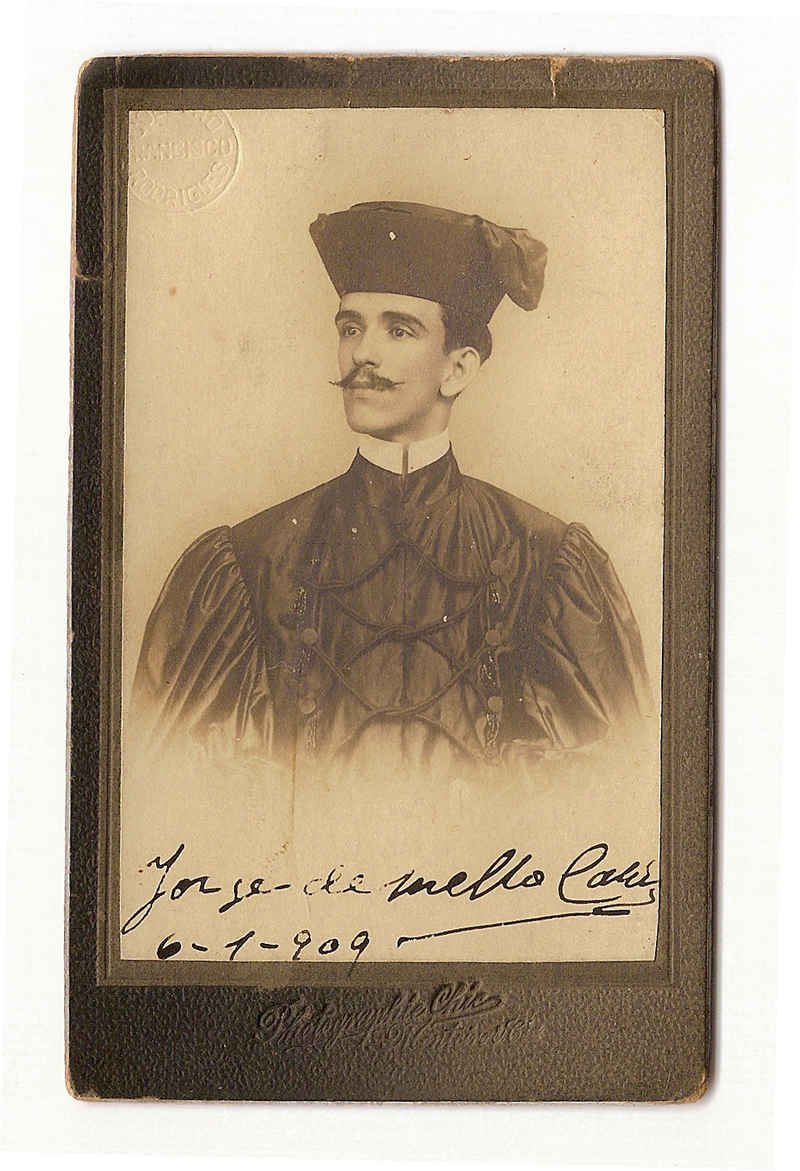 FRANCISCO
RODRIGUES
Jorge de mello
6-1-909
Photographie Chic